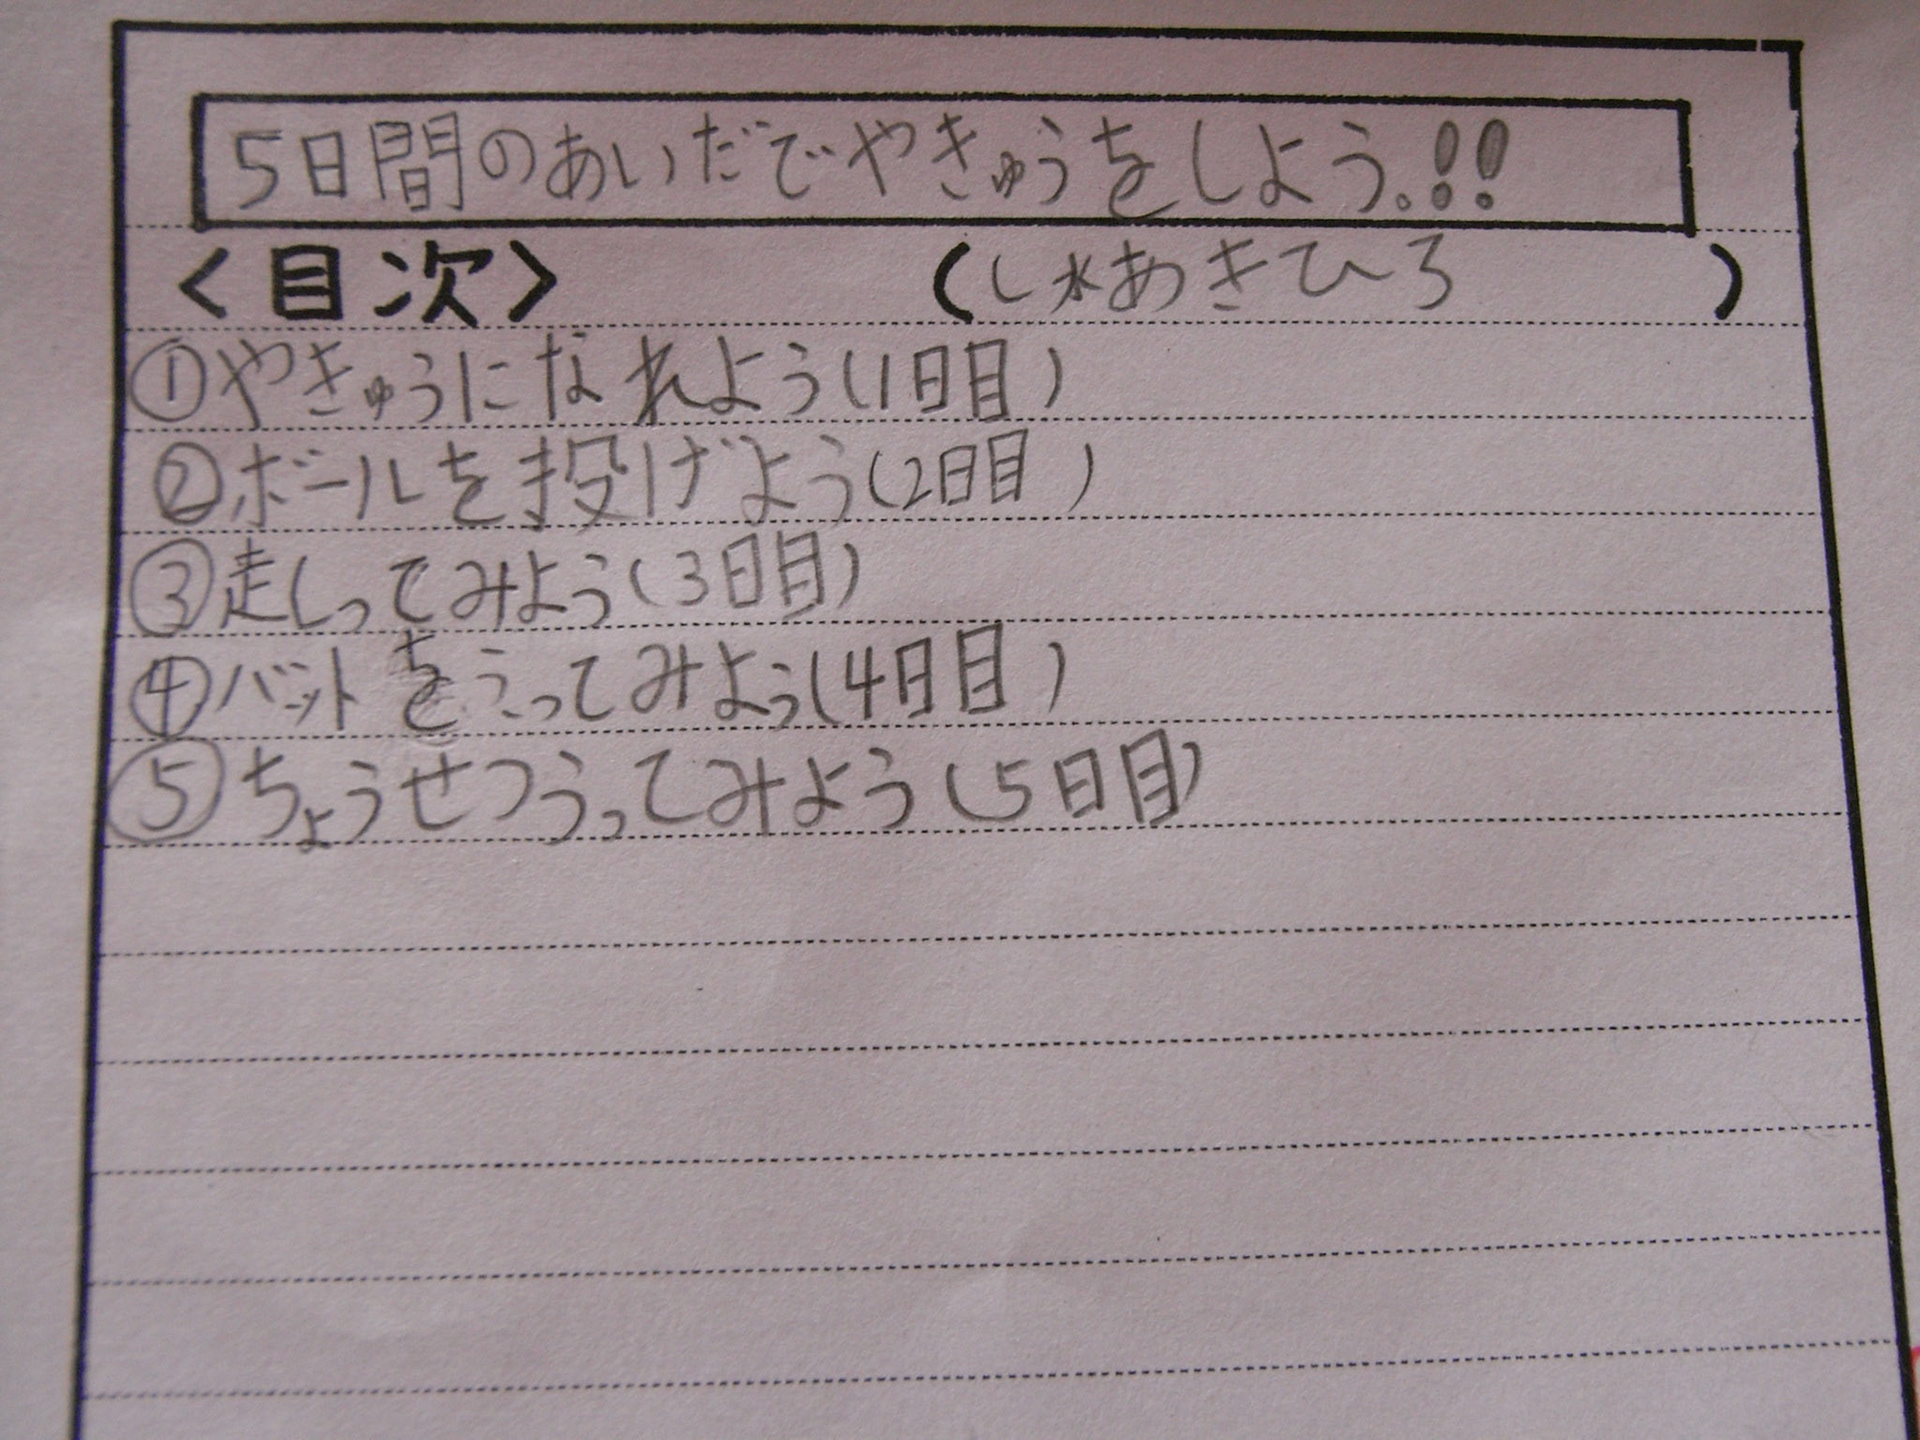 5日間のあいだでやきゅうをしよう。!!
<目次> (し水あきひろ)
①やきゅうになれよう(1日目)
②ボールを投げよう(2日目)
③走しってみよう(3日目)
④バットをうってみよう(4日目)
⑤ちょうせつうってみよう(5日目)